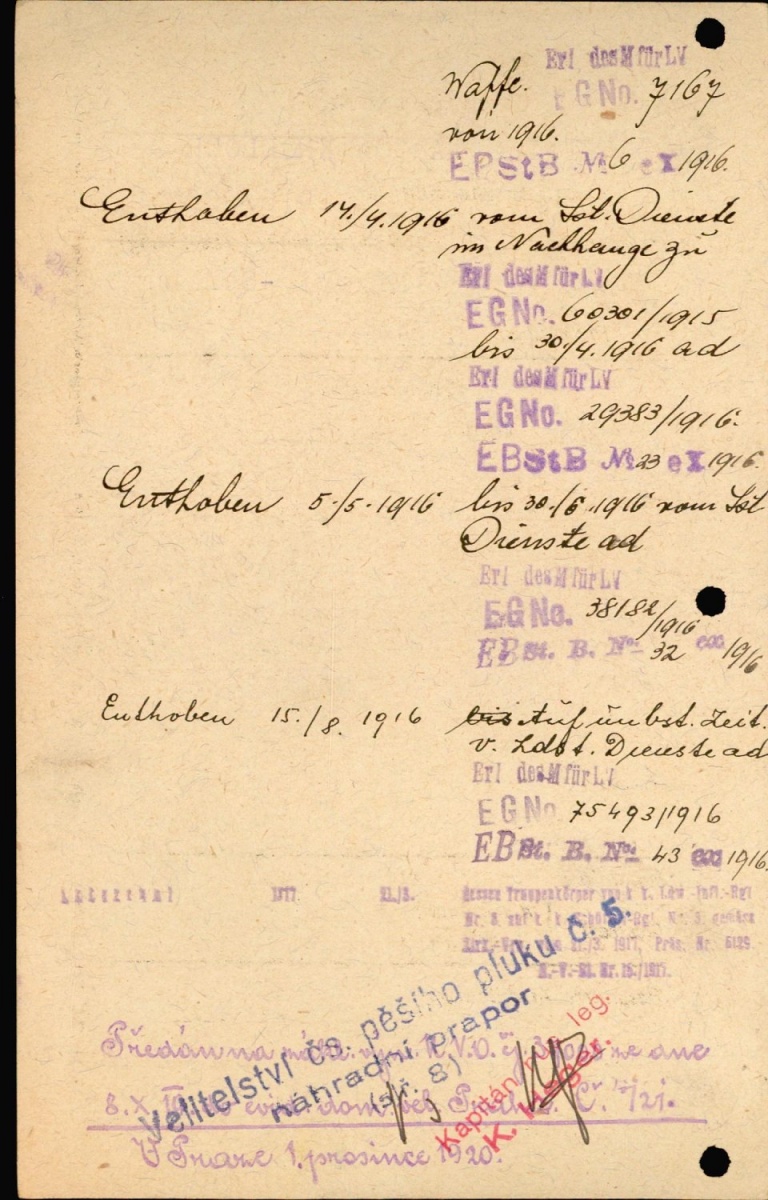 Erl des M für LV
Waffe. EGNo. 7167
von 1916.
EBStB No 6 ex 1916.
Enthoben 14./4.1916 vom Lst. Dienste
im Nachhange zu
Erl des M für LV
EGNo. 60301/1915
bis 30./4.1916 ad
Erl des M für LV
EGNo. 29383/1916.
EBStB No 23 ex 1916.
Enthoben 5./5.1916 bis 30./6.1916 vom Lst
Dienste ad
Erl des M für LV
EGNo. 38182/1916
EBSt. B. No: 32 ex 1916
Enthoben 15./8. 1916 bis Auf unbst. Zeit.
v. Ldst. Dienste ad
Erl des M für LV
EGNo 75493/1916
EBSt. B. No: 43 ex 1916.
1917. 21./3.
1917, Präs. Nr. 6129
Velitelství čs. pěšího pluku č. 5.
náhradní prapor
Kapitán rus. leg.
Předán na dne
8. X.
V Praze 1. prosince 1920.